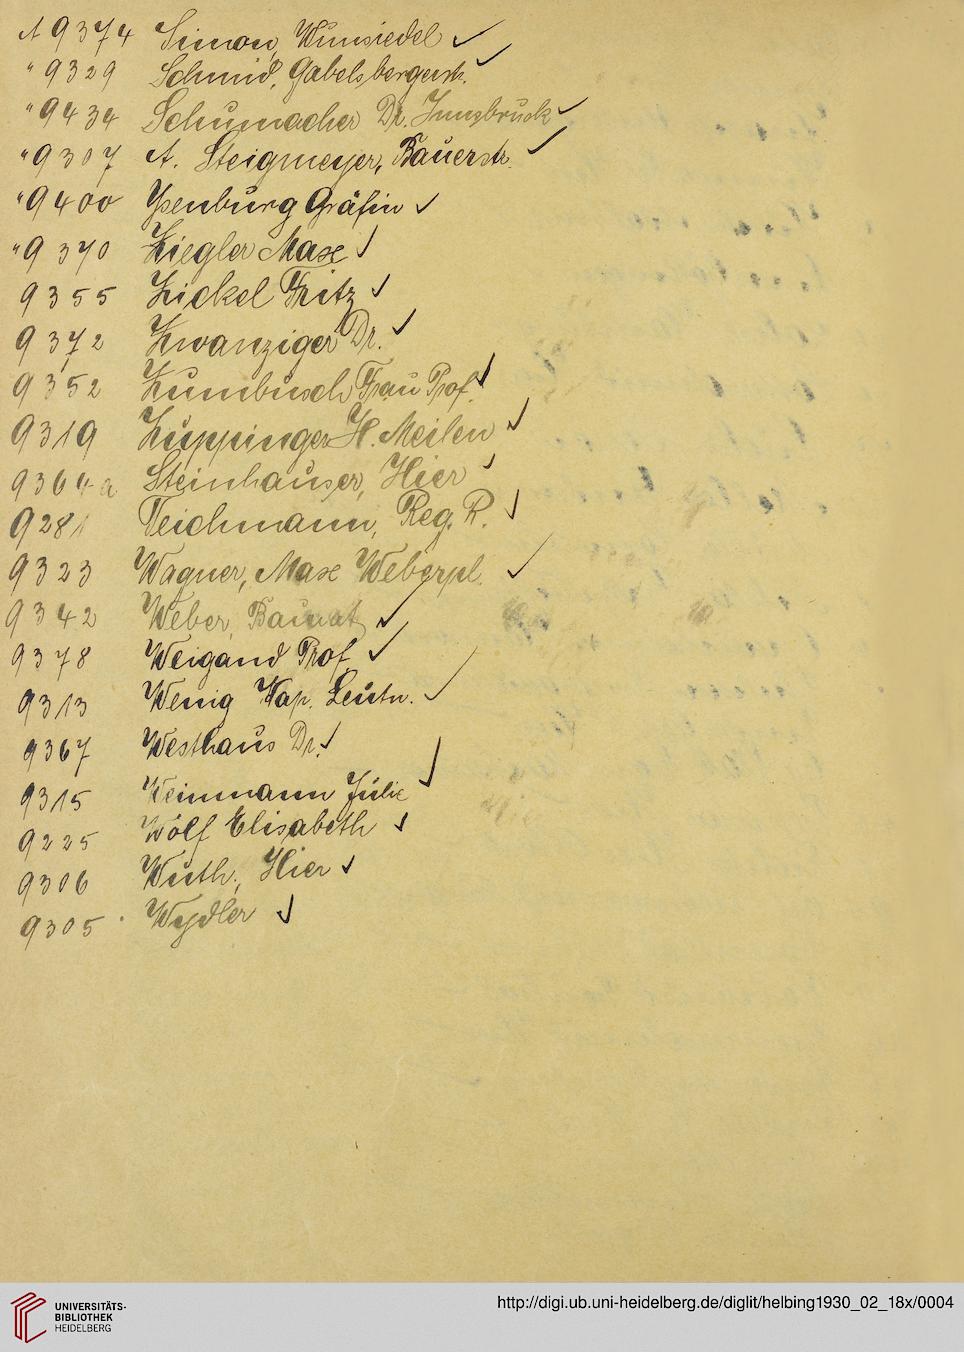 A 9374 Simon, Wunsiedel ✓
" 9329 Schmid, Gabelsbergerstr. ✓
" 9434 Schumacher Dr. Innsbruck ✓
" 9307 A. Steigmeyer, Bauerstr. ✓
" 9400 Ysenburg Gräfin ✓
" 9370 Ziegler Max ✓
9355 Zickel Fritz ✓
9372 Zwanziger Dr. ✓
9352 Zumbusch Frau Prof. ✓
9319 Zuppinger H. Meilen ✓
9364a Steinhauser, Hier ✓
9281 Teichmann, Reg. R. ✓
9323 Wagner, Max Weberpl. ✓
9342 Weber, Baurat ✓
9378 Weigand Prof. ✓
9313 Wenig Kap. Leutn. ✓
9367 Westhaus Dr. ✓
9315 Weinmann Julie ✓
9225 Wolf Elisabeth ✓
9306 Wuth, Hier ✓
9305 Wydler ✓
UNIVERSITÄTS-
BIBLIOTHEK
HEIDELBERG
http://digi.ub.uni-heidelberg.de/diglit/helbing1930_02_18x/0004